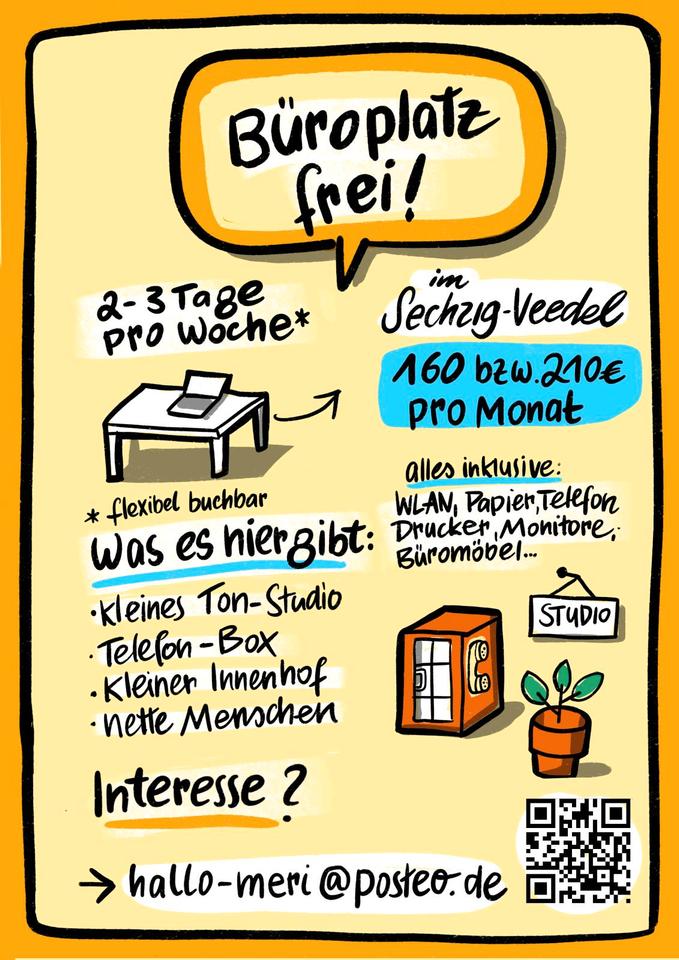 Büroplatz
frei!
2-3 Tage
pro Woche*
im
Sechzig-Veedel
160 bzw. 210€
pro Monat
alles inklusive:
WLAN, Papier, Telefon
Drucker, Monitore,
Büromöbel...
* flexibel buchbar
Was es hier gibt:
• kleines Ton-Studio
• Telefon-Box
• kleiner Innenhof
• nette Menschen
STUDIO
Interesse?
→ hallo-meri@posteo.de